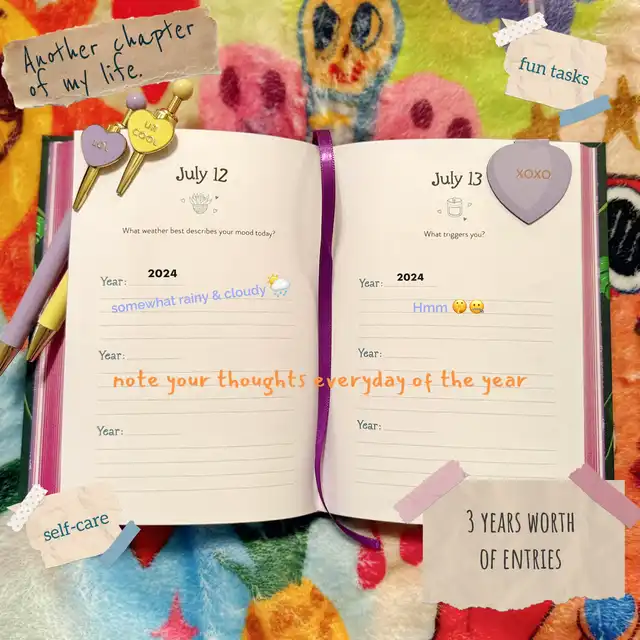 Another chapter
of my life.
fun tasks
LOL
UR
COOL
July 12
What weather best describes your mood today?
Year: 2024
somewhat rainy & cloudy 🌦️
Year:
Year:
July 13
XOXO
What triggers you?
Year: 2024
Hmm 🤫🤐
Year:
Year:
note your thoughts everyday of the year
self-care
3 YEARS WORTH
OF ENTRIES